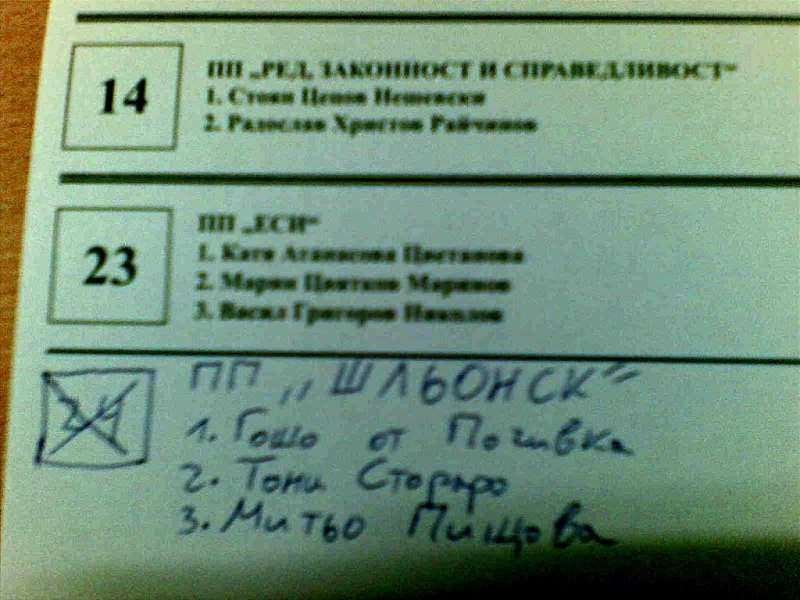 14
ПП „РЕД, ЗАКОННОСТ И СПРАВЕДЛИВОСТ“
1. Стоян Ценов Нешевски
2. Радослав Христов Райчинов
23
ПП „ЕСИ“
1. Катя Атанасова Цветанова
2. Марин Цветков Маринов
3. Васил Григоров Николов
24
ПП „ШЛЬОНСК“
1. Гошо от Почивка
2. Тони Стораро
3. Митьо Пищова